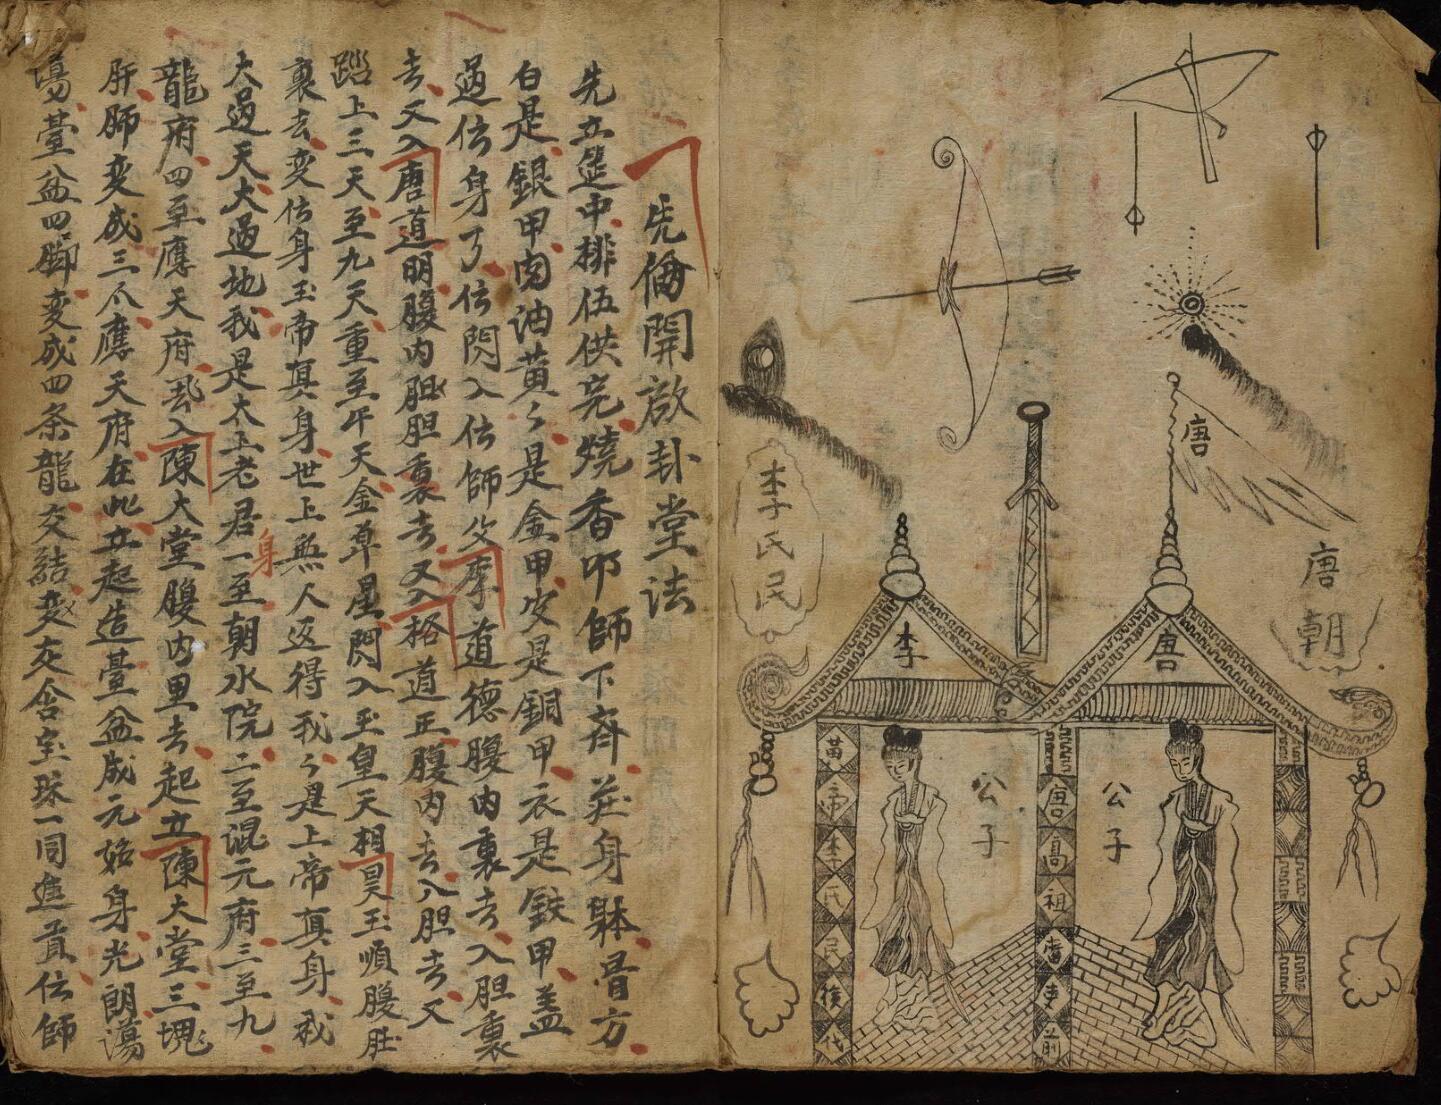 先偹開啟卦堂法
先立筵中排伍供完燒香叩師下齊莊身躰骨方
白是銀甲肉油黄々是金甲安是銅甲衣是鉄甲盖
過伝身了伝閃入伝師父李道德腹内裏去入胆裏
去又入唐道明腹内胆胆裏去又入格道正腹内去入胆去又
踏上三天至九天重至年天金草星閃入玉皇天相昊玉順腹肚
裏去変伝身玉帝真身世上無人返得我々是上帝真身我
大過天大過地我是太上老君一至朝水院二至混元府三至九
身
龍府四至應天府丟入陳大堂腹内里去起立陳大堂三塊
肝師変成三不應天府在此立起造臺盆成元始身光朗蕩
蕩臺盆四脚変成四条龍交結交交含宝珠一同進直伝師
唐
唐
朝
李
氏
民
李
唐
公子
公子
黃帝李氏民後代
唐高祖
前